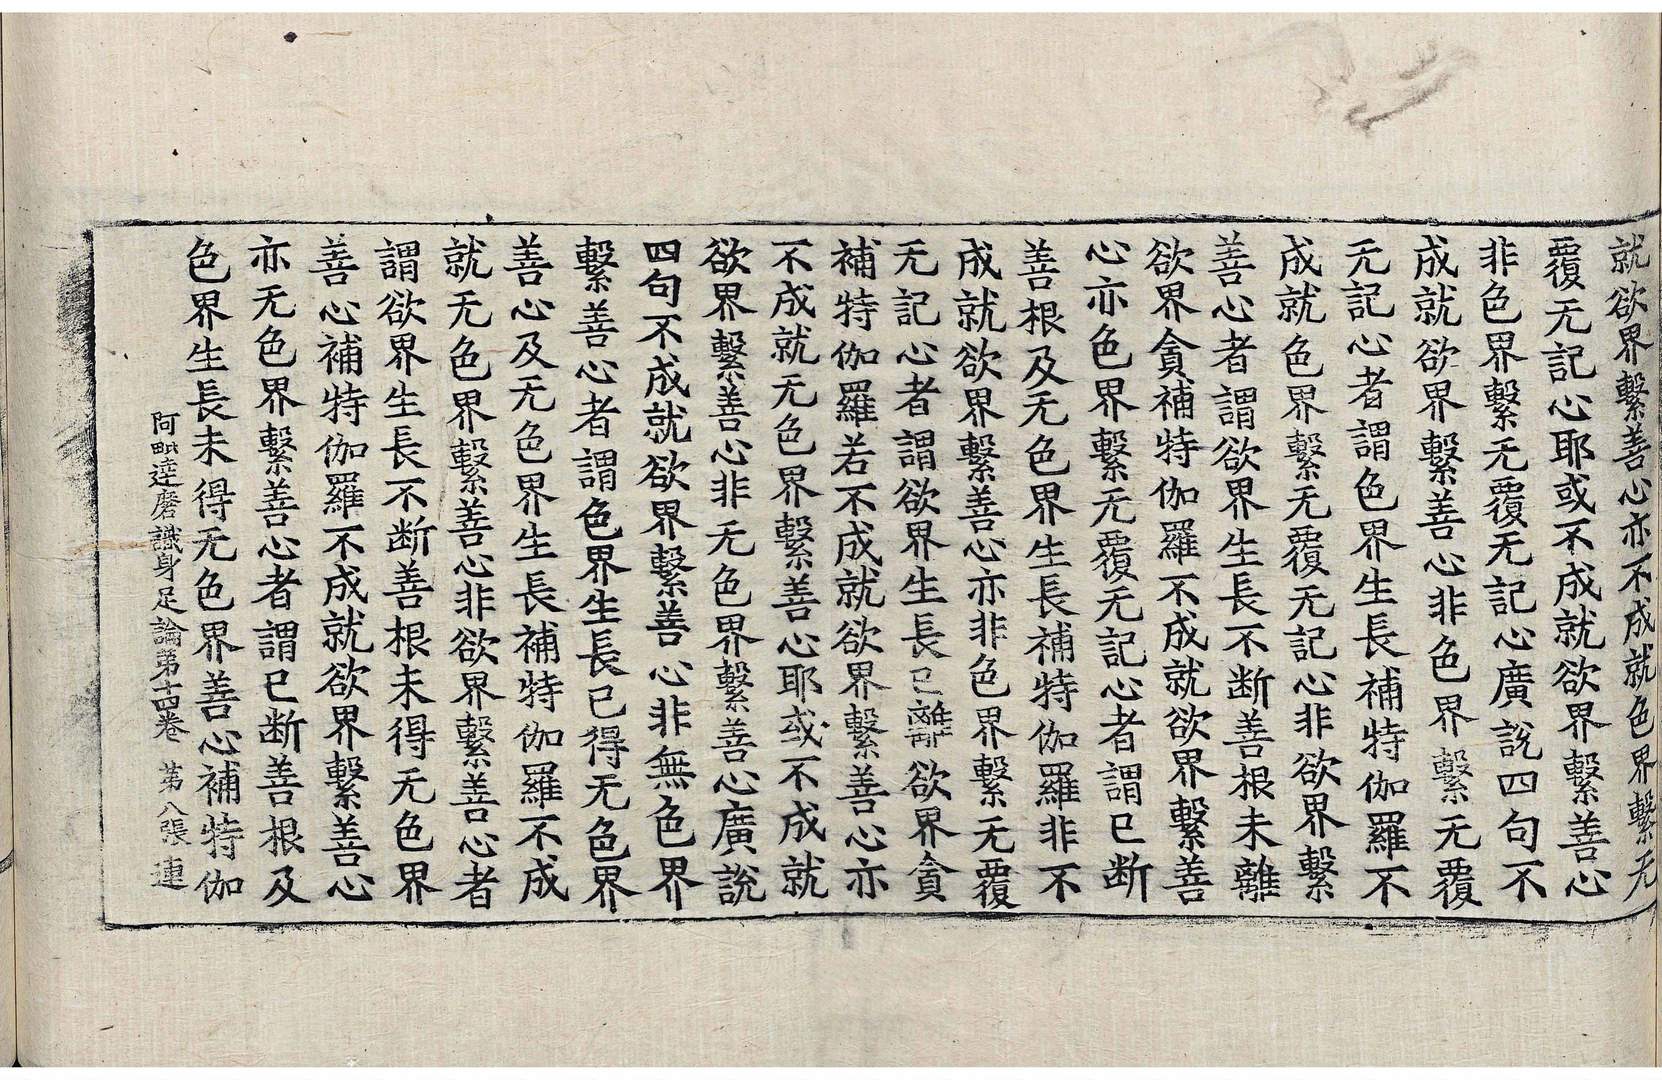 就欲界繫善心亦不成就色界繫无
覆无記心耶或不成就欲界繫善心
非色界繫无覆无記心廣說四句不
成就欲界繫善心非色界繫无覆
无記心者謂色界生長補特伽羅不
成就色界繫无覆无記心非欲界繫
善心者謂欲界生長不断善根未離
欲界貪補特伽羅不成就欲界繫善
心亦色界繫无覆无記心者謂已断
善根及无色界生長補特伽羅非不
成就欲界繫善心亦非色界繫无覆
无記心者謂欲界生長已離欲界貪
補特伽羅若不成就欲界繫善心亦
不成就无色界繫善心耶或不成就
欲界繫善心非无色界繫善心廣說
四句不成就欲界繫善心非無色界
繫善心者謂色界生長已得无色界
善心及无色界生長補特伽羅不成
就无色界繫善心非欲界繫善心者
謂欲界生長不断善根未得无色界
善心補特伽羅不成就欲界繫善心
亦无色界繫善心者謂已断善根及
色界生長未得无色界善心補特伽
阿毗達磨識身足論第十四卷 第八張 連